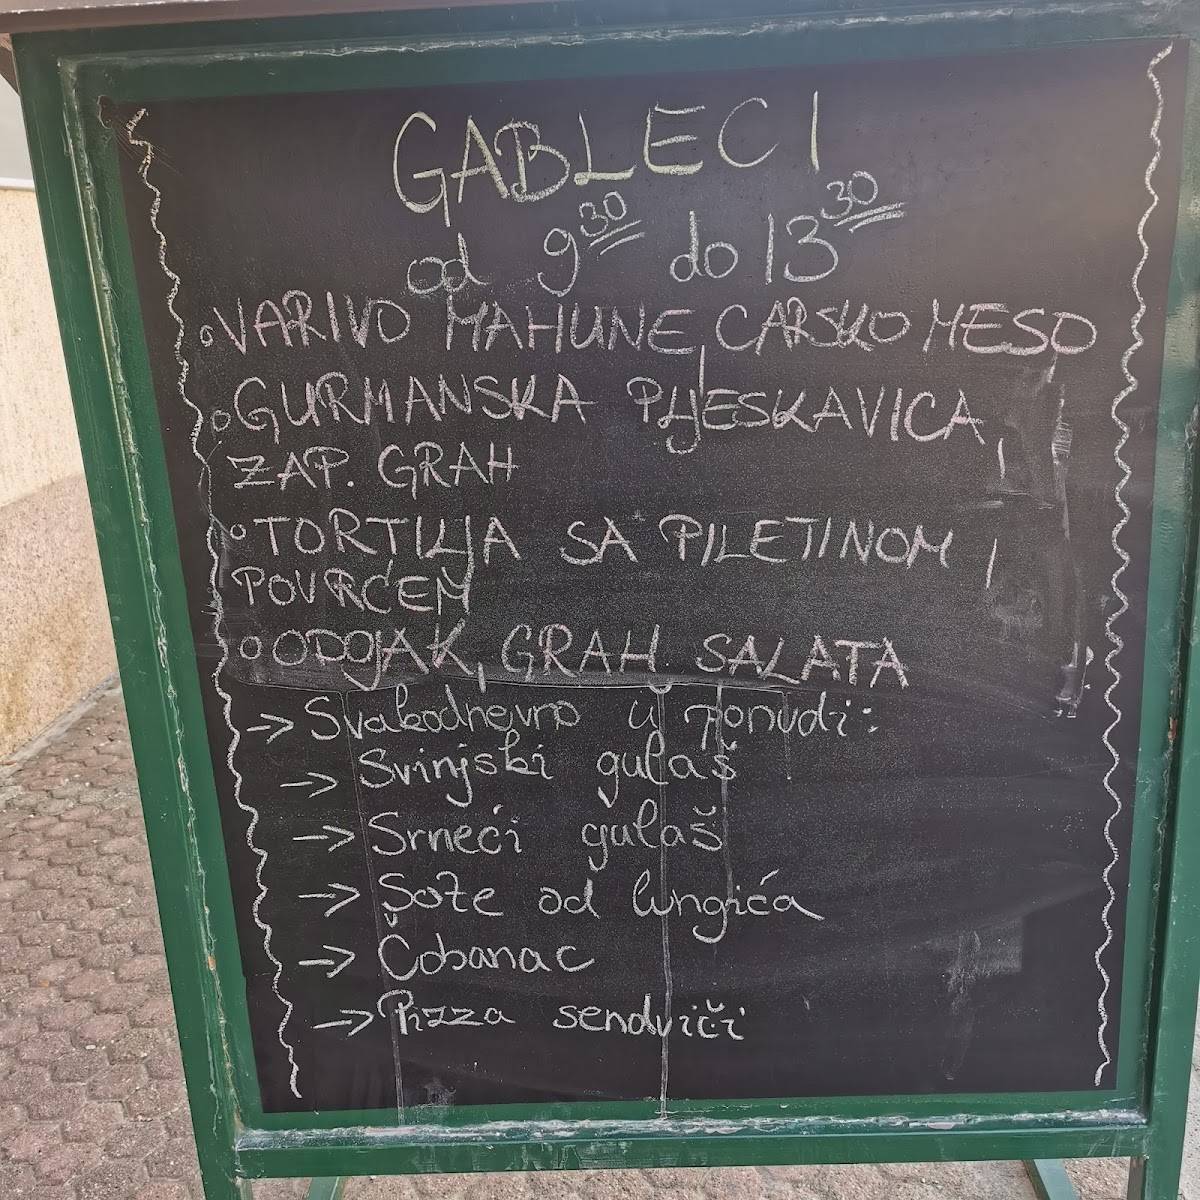 GABLECI
od 9³⁰ do 13³⁰
VARIVO MAHUNE, CARSKO MESO
GURMANSKA PLJESKAVICA,
ZAP. GRAH
TORTILJA SA PILETINOM,
POVRĆEM
ODOJAK, GRAH SALATA
→ Svakodnevno u ponudi:
→ Svinjski gulaš
→ Srneći gulaš
→ Sote od lungića
→ Čobanac
→ Pizza sendviči